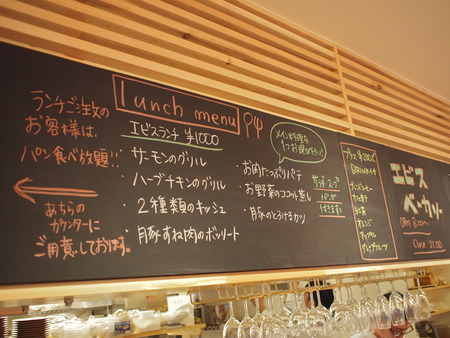 ランチご注文の
お客様は、
パン食べ放題!!
あちらの
カウンターに
ご用意しております。
lunch menu
エビスランチ ¥1000
・サーモンのグリル
・ハーブチキンのグリル
・2種類のキッシュ
・豚すね肉のボッリート
メイン料理を
1つお選び下さい!
・お肉たっぷりパテ
・お野菜のココット蒸し
・豚のとろけるカツ
サラダ・スープ
パンが
付きます
プラス ¥200で
紅茶
オレンジ
アップル
グレープフルーツ
エビス
バー
Close 23:00